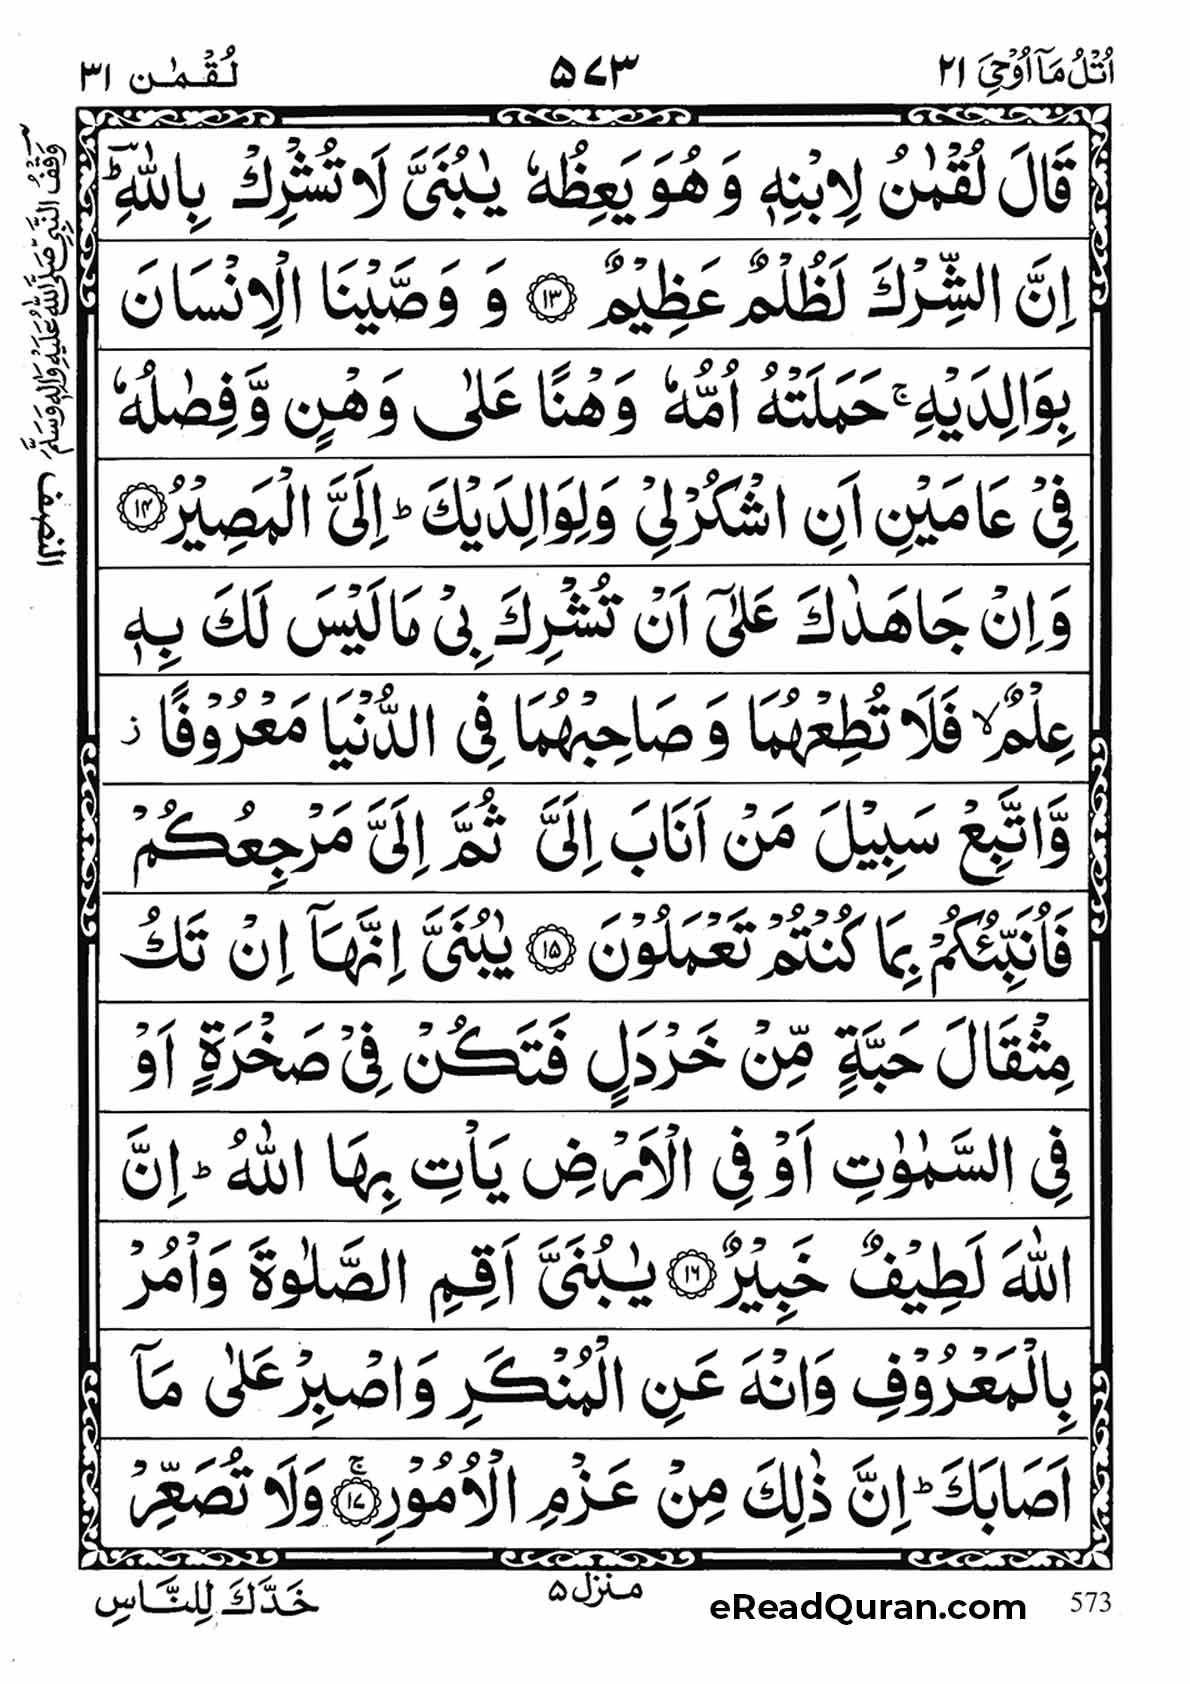 اُتْلُ مَآ اُوْحِيَ ٢١
٥٧٣
لُقْمٰن ٣١
قَالَ لُقْمٰنُ لِابْنِهٖ وَهُوَ يَعِظُهٗ يٰبُنَيَّ لَا تُشْرِكْ بِاللّٰهِ ؕ
اِنَّ الشِّرْكَ لَظُلْمٌ عَظِيْمٌ ١٣ وَ وَصَّيْنَا الْاِنْسَانَ
بِوَالِدَيْهِ ۚ حَمَلَتْهُ اُمُّهٗ وَهْنًا عَلٰى وَهْنٍ وَّفِصٰلُهٗ
فِيْ عَامَيْنِ اَنِ اشْكُرْ لِيْ وَلِوَالِدَيْكَ ؕ اِلَيَّ الْمَصِيْرُ ١٤
وَاِنْ جَاهَدٰكَ عَلٰٓى اَنْ تُشْرِكَ بِيْ مَا لَيْسَ لَكَ بِهٖ
عِلْمٌ ۙ فَلَا تُطِعْهُمَا وَصَاحِبْهُمَا فِي الدُّنْيَا مَعْرُوْفًا ز
وَّاتَّبِعْ سَبِيْلَ مَنْ اَنَابَ اِلَيَّ ثُمَّ اِلَيَّ مَرْجِعُكُمْ
فَاُنَبِّئُكُمْ بِمَا كُنْتُمْ تَعْمَلُوْنَ ١٥ يٰبُنَيَّ اِنَّهَآ اِنْ تَكُ
مِثْقَالَ حَبَّةٍ مِّنْ خَرْدَلٍ فَتَكُنْ فِيْ صَخْرَةٍ اَوْ
فِي السَّمٰوٰتِ اَوْ فِي الْاَرْضِ يَاْتِ بِهَا اللّٰهُ ؕ اِنَّ
اللّٰهَ لَطِيْفٌ خَبِيْرٌ ١٦ يٰبُنَيَّ اَقِمِ الصَّلٰوةَ وَاْمُرْ
بِالْمَعْرُوْفِ وَانْهَ عَنِ الْمُنْكَرِ وَاصْبِرْ عَلٰى مَآ
اَصَابَكَ ؕ اِنَّ ذٰلِكَ مِنْ عَزْمِ الْاُمُوْرِ ۚ ١٧ وَلَا تُصَعِّرْ
وَقْفُ النَّبِيِّ صَلَّى اللّٰهُ عَلَيْهِ وَاٰلِهٖ وَسَلَّمَ
النصف
خَدَّكَ لِلنَّاسِ
منزل ٥
eReadQuran.com
573